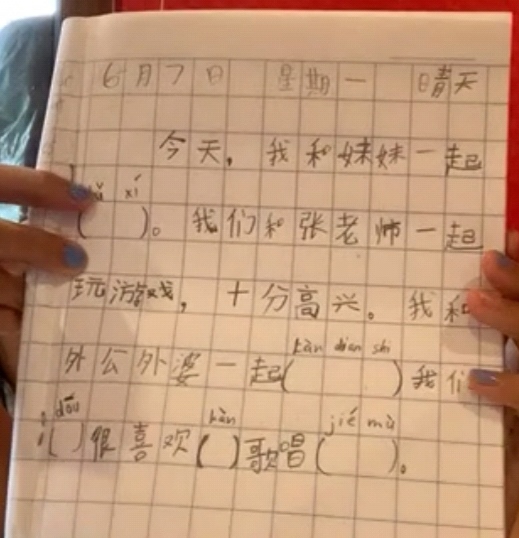 6月7日 星期一 晴天
今天，我和妹妹一起
xí
( )。我们和张老师一起
玩游戏，十分高兴。我和
kàn dian shi
外公外婆一起( )我们
dōu kàn jié mù
( )很喜欢( )歌唱( )。